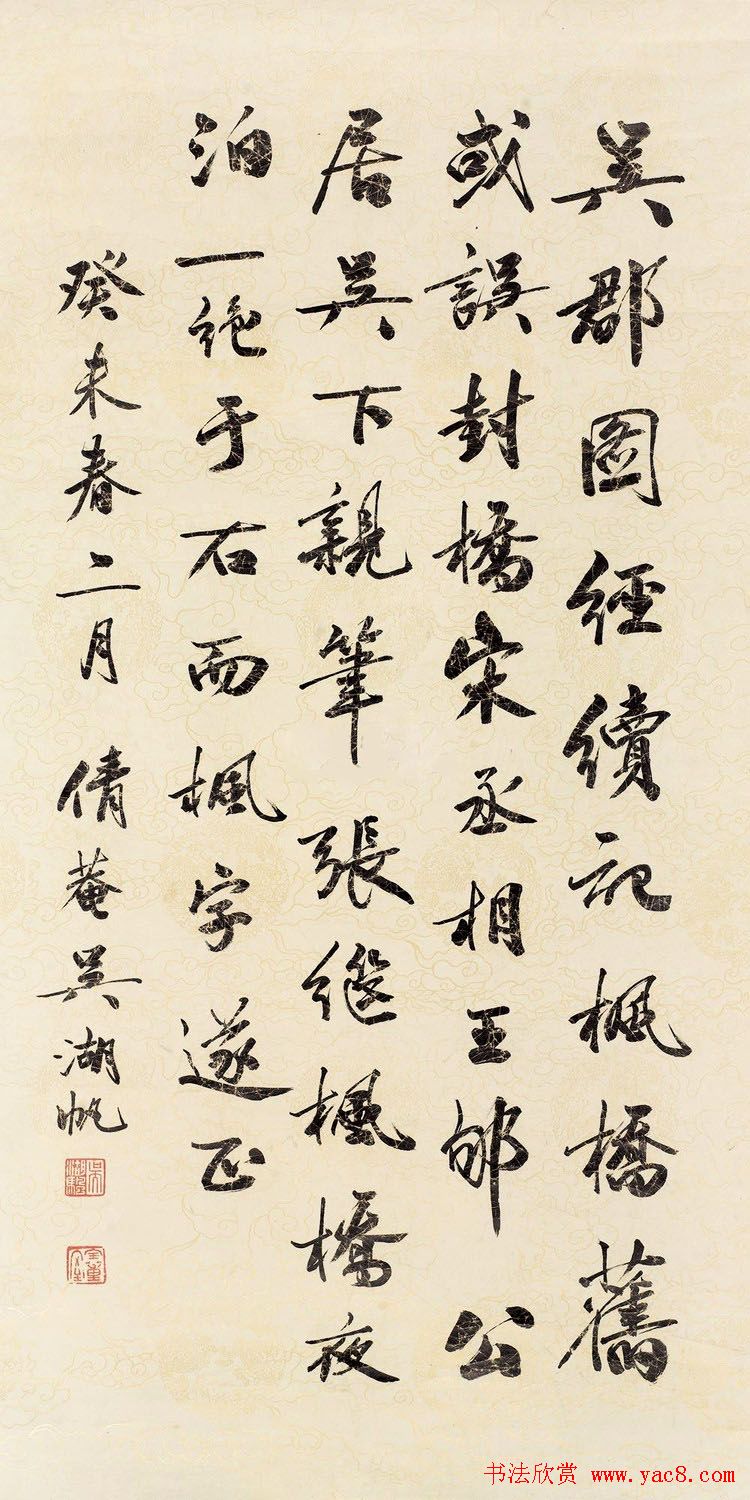 吳郡圖經續記楓橋舊
或誤封橋宋丞相王郇公
居吳下親筆張继楓橋夜
泊一絶于右而楓字遂正
癸未春二月 倩菴吳湖帆
吳湖颿
书法欣赏 www.yac8.com